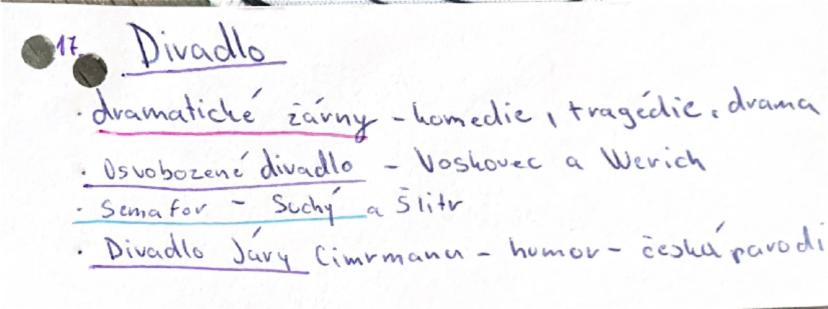 17. Divadlo
· dramatické žárny - komedie, tragédie, drama
· Osvobozené divadlo - Voskovec a Werich
· Semafor - Suchý a Šlitr
· Divadlo Járy Cimrmana - humor - česká parodi